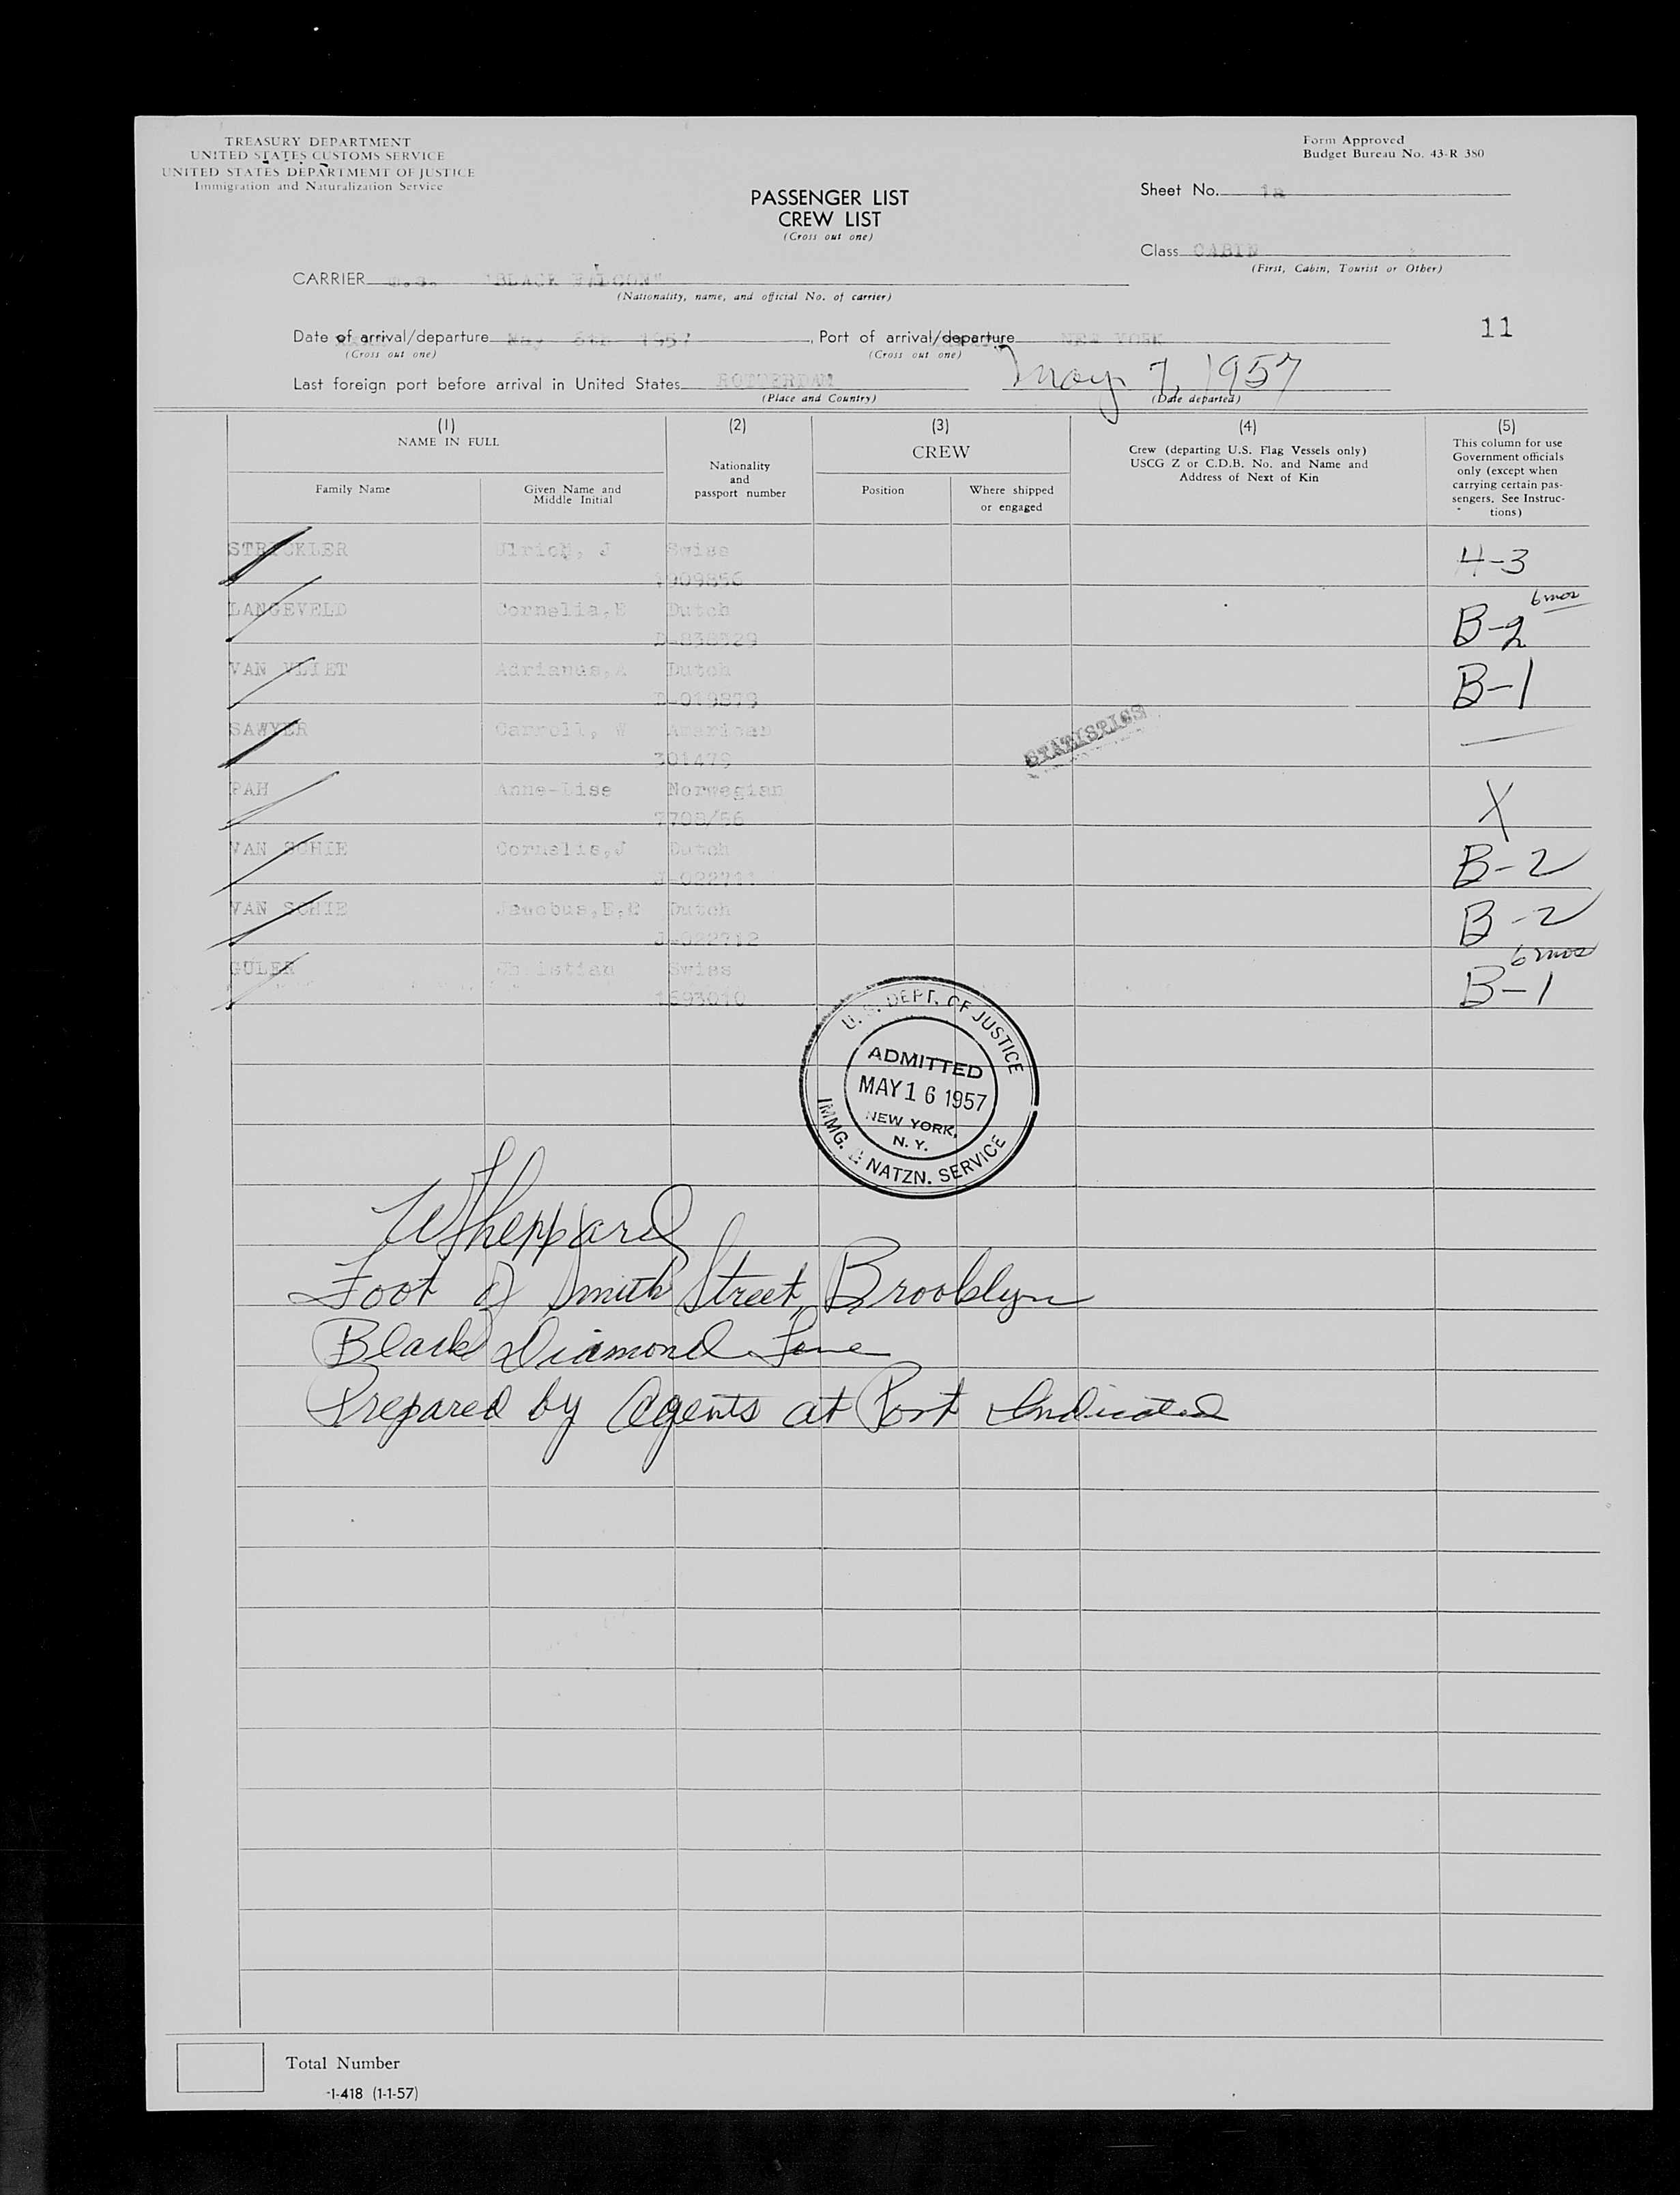 TREASURY DEPARTMENT
UNITED STATES CUSTOMS SERVICE
UNITED STATES DEPARTMEMT OF JUSTICE
Immigration and Naturalization Service
Form Approved
Budget Bureau No. 43-R 380
PASSENGER LIST
CREW LIST
(Cross out one)
Sheet No. 1a
Class CABIN
(First, Cabin, Tourist or Other)
CARRIER "BLACK FALCON"
(Nationality, name, and official No. of carrier)
11
Date of arrival/departure May 1957, Port of arrival/departure NEW YORK
(Cross out one) (Cross out one)
Last foreign port before arrival in United States ROTTERDAM May 7, 1957
(Place and Country) (Date departed)
(1) (2) (3) (4) (5)
NAME IN FULL
Family Name
Given Name and
Middle Initial
Nationality
and
passport number
CREW
Position
Where shipped
or engaged
Crew (departing U.S. Flag Vessels only)
USCG Z or C.D.B. No. and Name and
Address of Next of Kin
This column for use
Government officials
only (except when
carrying certain pas-
sengers. See Instruc-
tions)
STRICKLER Ulrich, J Swiss H-3
1909856
LANGEVELD Cornelia, Dutch B-2 6 mos
VAN VLIET Adrianus, A Dutch B-1
D-019879
SAWYER Carroll, W American
301479
STATISTICS
PAH Anne-Lise Norwegian X
7708/56
VAN SCHIE Cornelis, J Dutch B-2
J-022711
VAN SCHIE Jacobus, Dutch B-2
J-022712
6 mos
GULER Christian Swiss B-1
1693010
U.S. DEPT. OF JUSTICE
ADMITTED
MAY 16 1957
NEW YORK,
N. Y.
IMMG. & NATZN. SERVICE
W Sheppard
Foot of Smith Street, Brooklyn
Black Diamond Line
Prepared by Agents at Port Indicated
Total Number
-1-418 (1-1-57)